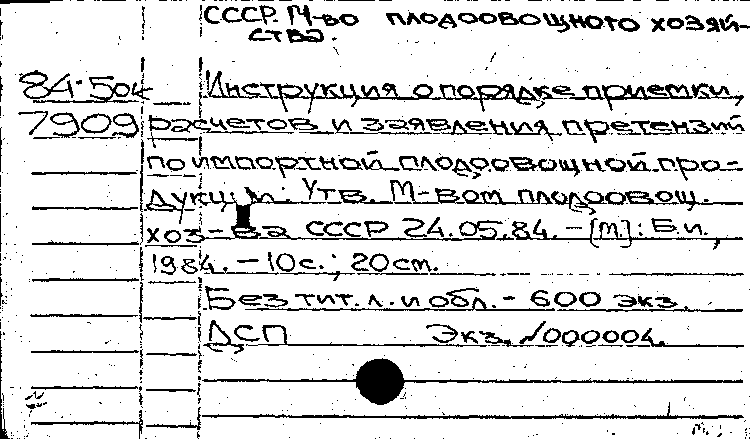 СССР. М-во плодоовощного хозяй-
ства.
84-5ок Инструкция о порядке приемки,
7909 расчетов и заявления претензий
по импортной плодоовощной про-
дукции: Утв. М-вом плодоовощ.
хоз-ва СССР 24.05.84. - [М]: Б.и.,
1984. - 10с.; 20см.
Без тит. л. и обл. - 600 экз.
ДСП Экз. №000004.